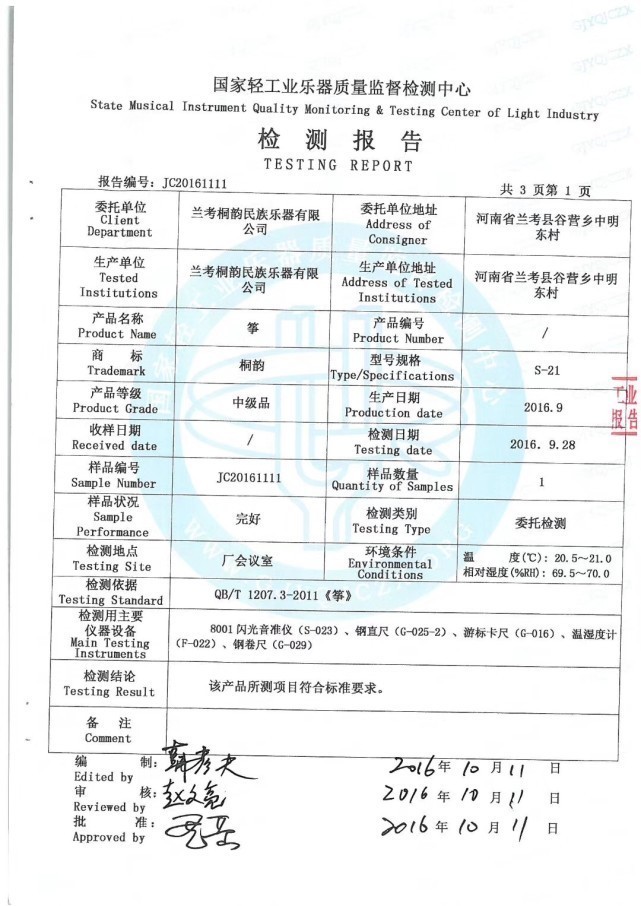 国家轻工业乐器质量监督检测中心
State Musical Instrument Quality Monitoring & Testing Center of Light Industry
检 测 报 告
TESTING REPORT
报告编号: JC20161111
共 3 页第 1 页
委托单位
Client
Department
兰考桐韵民族乐器有限
公司
委托单位地址
Address of
Consigner
河南省兰考县谷营乡中明
东村
生产单位
Tested
Institutions
兰考桐韵民族乐器有限
公司
生产单位地址
Address of Tested
Institutions
河南省兰考县谷营乡中明
东村
产品名称
Product Name
筝
产品编号
Product Number
/
商 标
Trademark
桐韵
型号规格
Type/Specifications
S-21
产品等级
Product Grade
中级品
生产日期
Production date
2016.9
收样日期
Received date
/
检测日期
Testing date
2016. 9.28
样品编号
Sample Number
JC20161111
样品数量
Quantity of Samples
1
样品状况
Sample
Performance
完好
检测类别
Testing Type
委托检测
检测地点
Testing Site
厂会议室
环境条件
Environmental
Conditions
温 度(℃): 20.5～21.0
相对湿度(%RH): 69.5～70.0
检测依据
Testing Standard
QB/T 1207.3-2011《筝》
检测用主要
仪器设备
Main Testing
Instruments
8001 闪光音准仪（S-023）、钢直尺（G-025-2）、游标卡尺（G-016）、温湿度计
（F-022）、钢卷尺（G-029）
检测结论
Testing Result
该产品所测项目符合标准要求。
备 注
Comment
编 制:
Edited by
2016 年 10 月 11 日
审 核:
Reviewed by
赵文亮
2016 年 10 月 11 日
批 准:
Approved by
2016 年 10 月 11 日
工业
报告